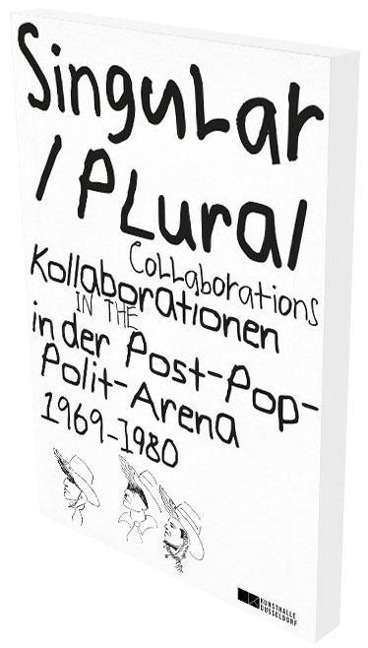 Singular
/ Plural
Collaborations
Kollaborationen
IN THE
in der Post-Pop-
Polit-Arena
1969-1980
KUNSTHALLE
DÜSSELDORF